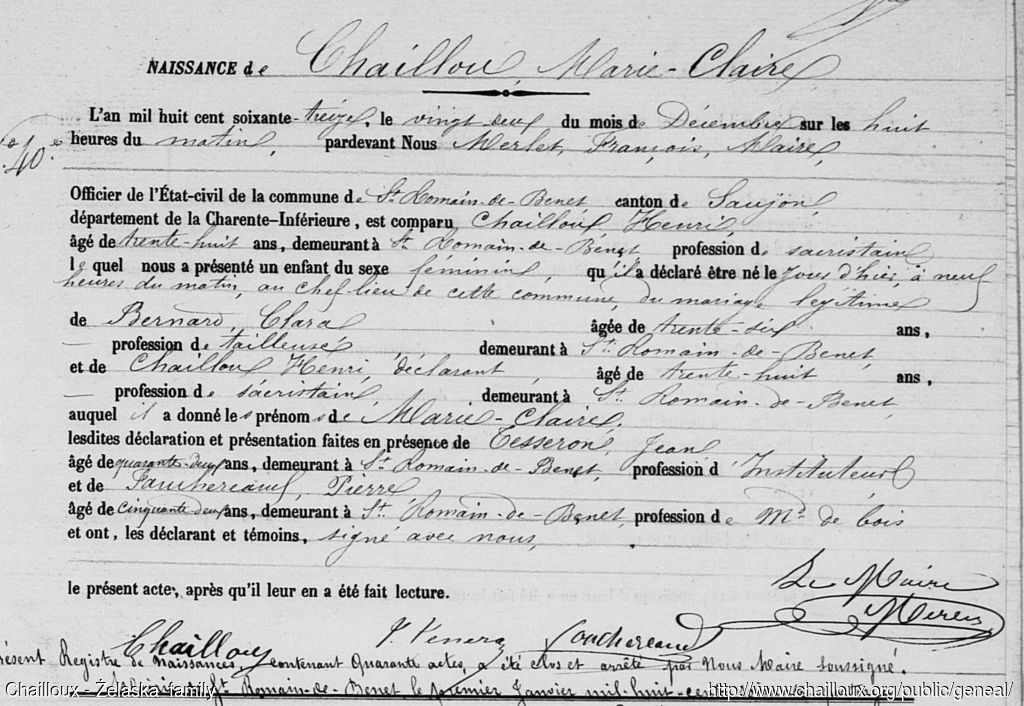 NAISSANCE de Chailloux, Marie-Claire
L'an mil huit cent soixante-treize, le vingt-deux du mois de Décembre sur les huit
40e
heures du matin, pardevant Nous Merlet, François, Maire,
Officier de l'État-civil de la commune de St Romain-de-Benet canton de Saujon,
département de la Charente-Inférieure, est comparu Chailloux, Henri,
âgé de trente-huit ans, demeurant à St Romain-de-Benet profession de sacristain
lequel nous a présenté un enfant du sexe féminin, qu'il a déclaré être né le jour d'hier, à neuf
heures du matin, au chef-lieu de cette commune, du mariage légitime
de Bernard, Clara âgée de trente-six ans,
— profession de tailleuse demeurant à St Romain-de-Benet,
et de Chailloux Henri, déclarant, âgé de trente-huit ans,
— profession de sacristain, demeurant à St Romain-de-Benet,
auquel il a donné les prénoms de Marie-Claire,
lesdites déclaration et présentation faites en présence de Tesseron, Jean,
âgé de quarante-deux ans, demeurant à St Romain-de-Benet, profession d'Instituteur
et de Fouchereaud, Pierre
âgé de cinquante deux ans, demeurant à St Romain-de-Benet, profession de Md de bois
et ont, les déclarant et témoins, signé avec nous,
le présent acte, après qu'il leur en a été fait lecture.
Le Maire
Merlet
Chailloux Fouchereaud
présent Registre de naissances, contenant Quarante actes, a été clos et arrêté par Nous Maire soussigné.
St Romain-de-Benet le premier Janvier mil-huit-cent
Chailloux - Želaska family
http://www.chailloux.org/public/geneal/